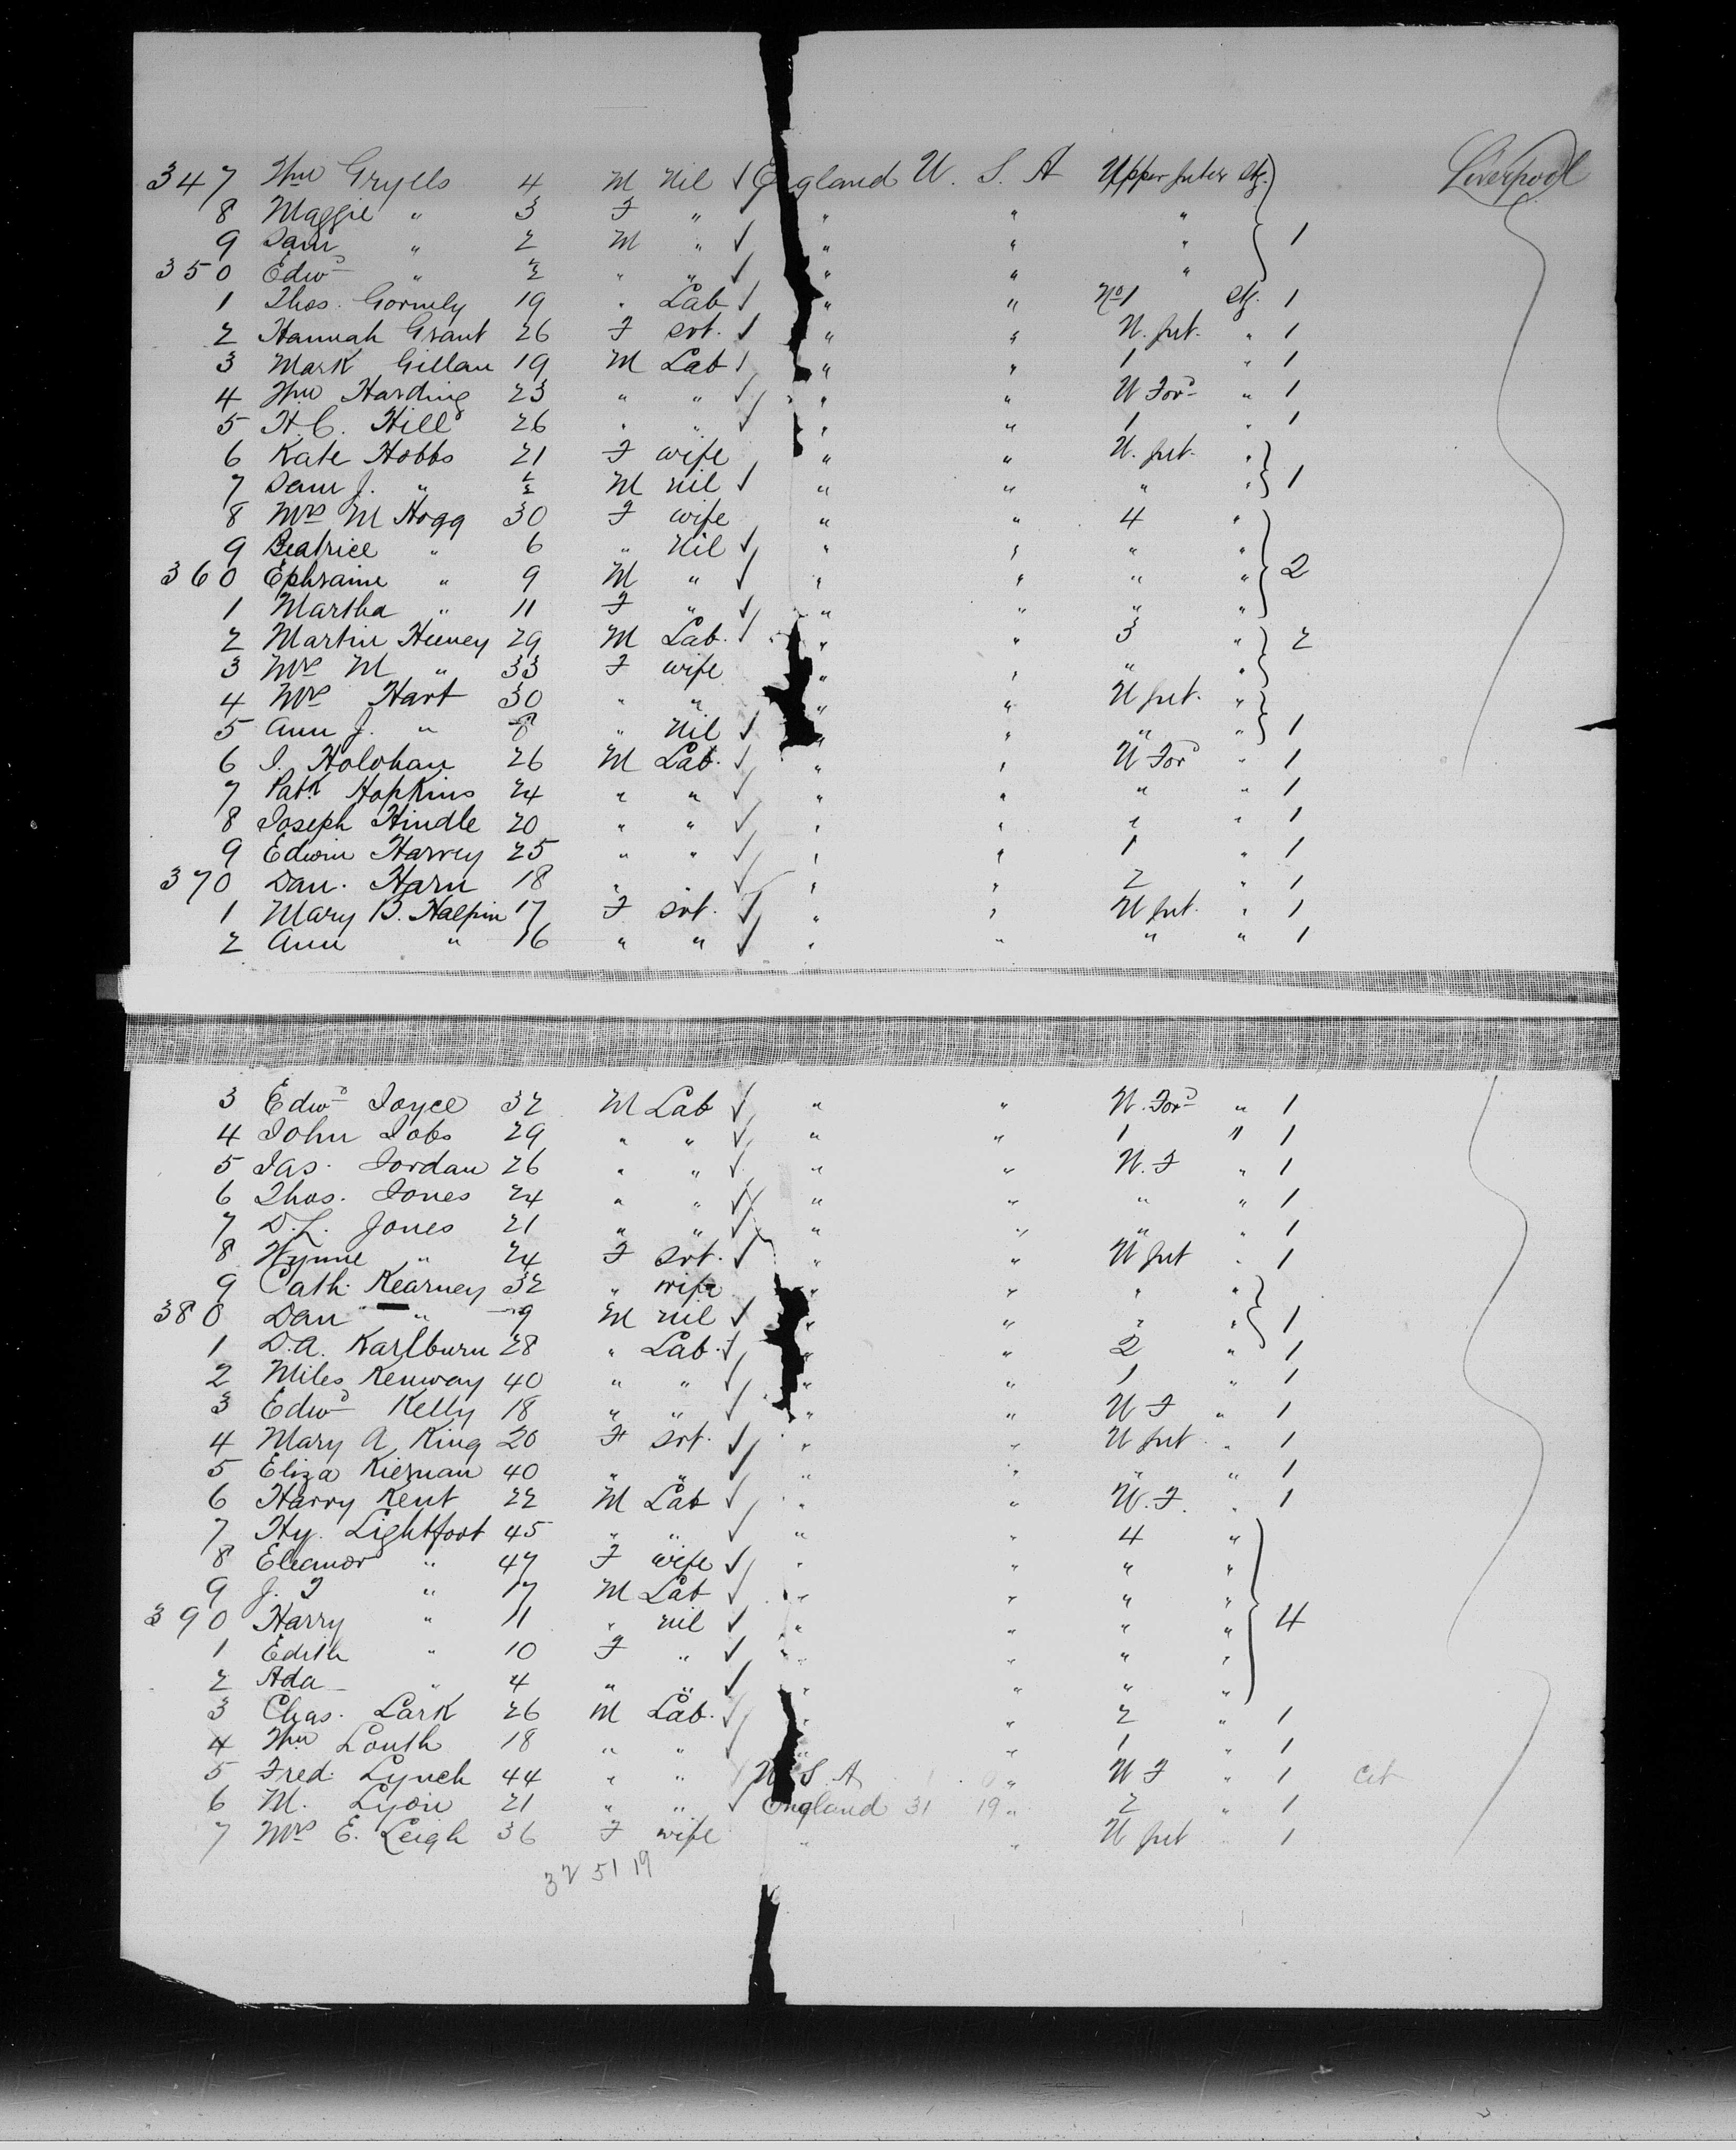 347 Wm Grylls 4 M Nil ✓ England U. S. A Upper Inter Stg. Liverpool
8 Maggie " 3 F " " " "
9 Sam " 2 M " ✓ " " " 1
350 Edwd " ½ " " ✓ " " "
1 Thos. Gormely 19 " Lab ✓ " " No 1 Stg. 1
2 Hannah Grant 26 F Svt. ✓ " " U. Int. " 1
3 Mark Gillan 19 M Lab ✓ " " 1 " 1
4 Wm Harding 23 " " ✓ " " U Ford " 1
5 H.C. Hill 26 " " ✓ " " 1 " 1
6 Kate Hobbs 21 F wife " " U. Int. "
7 Sam J. " ½ M nil ✓ " " " " 1
8 Mrs M Hogg 30 F wife " " 4 "
9 Beatrice " 6 " Nil ✓ " " " "
360 Ephraim " 9 M " ✓ " " " " 2
1 Martha " 11 F " ✓ " " " "
2 Martin Heeney 29 M Lab. ✓ " " 3 " 2
3 Mrs M " 33 F wife " " " "
4 Mrs Hart 30 " " " " U Int. "
5 Ann J. " 8 " Nil ✓ " " " " 1
6 J. Holohan 26 M Lab. ✓ " " U Ford " 1
7 Patk Hopkins 24 " " ✓ " " " " 1
8 Joseph Hindle 20 " " ✓ " " " " 1
9 Edwin Harvey 25 " " ✓ " " 1 " 1
370 Dan. Harn 18 " " ✓ " " 2 " 1
1 Mary B. Halpin 17 F Svt. ✓ " " U Int. " 1
2 Ann " 16 " " ✓ " " " " 1
3 Edwd Joyce 32 M Lab ✓ " " U. Ford " 1
4 John Jobs 29 " " ✓ " " 1 " 1
5 Jas. Jordan 26 " " ✓ " " U. F " 1
6 Thos. Jones 24 " " ✓ " " " " 1
7 D.L. Jones 21 " " ✓ " " " " 1
8 Wynne " 24 F Svt. ✓ " " U Int " 1
9 Cath. Kearney 32 " wife " " " "
380 Dan " 9 M nil ✓ " " " " 1
1 D.A. Karlburn 28 " Lab. ✓ " " 2 " 1
2 Miles Kenway 40 " " ✓ " " 1 " 1
3 Edwd Kelly 18 " " ✓ " " U F " 1
4 Mary A King 20 F Svt. ✓ " " U Int " 1
5 Eliza Kiernan 40 " " ✓ " " " " 1
6 Harry Kent 22 M Lab ✓ " " U. F. " 1
7 Hy. Lightfoot 45 " " ✓ " " 4 "
8 Eleanor " 47 F wife ✓ " " " "
9 J. T " 17 M Lab ✓ " " " "
390 Harry " 11 " nil ✓ " " " " 4
1 Edith " 10 F " ✓ " " " "
2 Ada " 4 " " ✓ " " " "
3 Chas. Lark 26 M Lab. ✓ " " 2 " 1
4 Wm Louth 18 " " ✓ " " 1 " 1
5 Fred. Lynch 44 " " ✓ U S. A " U F " 1 Cit
6 M. Lyon 21 " " ✓ England 31 19 " 2 " 1
7 Mrs E. Leigh 36 F wife " " U Int " 1
32 51 19